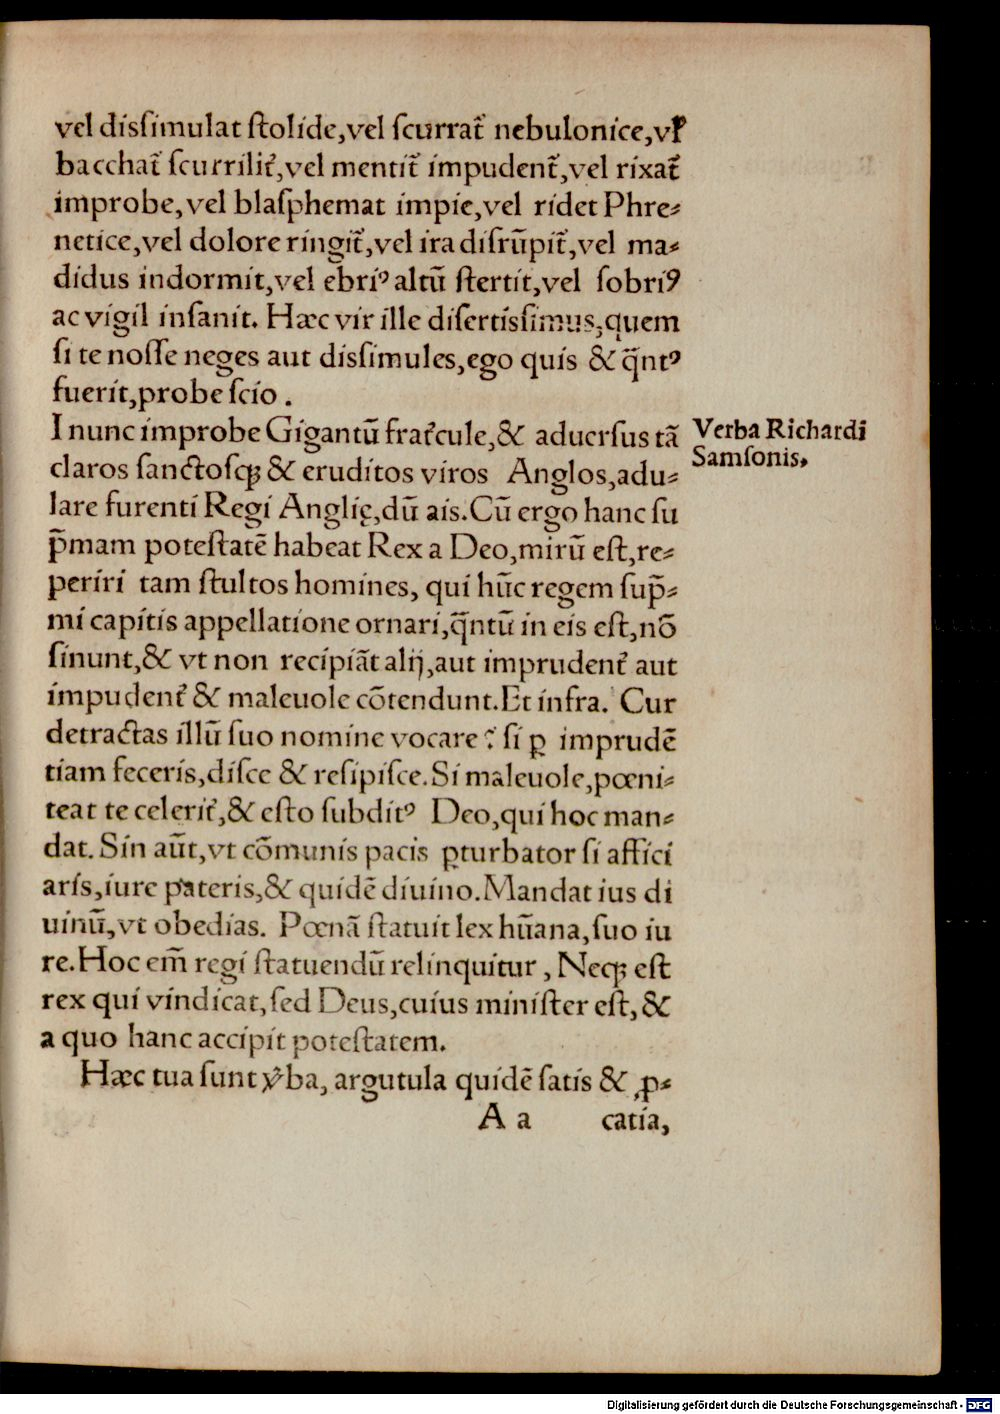 vel dissimulat ſtolide,vel ſcurrat̃ nebulonice,vl̃
bacchat̃ ſcurrilit̃,vel mentit̃ impudent̃,vel rixat̃
improbe,vel blaſphemat impie,vel ridet Phre⸗
netice,vel dolore ringit̃,vel ira diſrũpit̃,vel ma⸗
didus indormit,vel ebriꝰ altũ ſtertit,vel ſobriꝰ
ac vigil inſanit. Hæc vir ille diſertissimus,quem
ſi te noſſe neges aut dissimules,ego quis & q̃ntꝰ
fuerit,probe ſcio.
I nunc improbe Gigantũ frat̃cule,& aduerſus tã
claros ſanctoſq̃ & eruditos viros Anglos,adu⸗
lare furenti Regi Anglię,dũ ais.Cũ ergo hanc ſu
p̃mam poteſtatẽ habeat Rex a Deo,mirũ eſt,re⸗
periri tam ſtultos homines, qui hũc regem ſup̃⸗
mi capitis appellatione ornari,q̃ntũ in eis eſt,nõ
ſinunt,& vt non recipiãt alij,aut imprudent̃ aut
impudent̃ & maleuole cõtendunt.Et infra. Cur
detractas illũ ſuo nomine vocare? ſi ꝑ imprudẽ
tiam feceris,diſce & reſipiſce.Si maleuole,pœni⸗
teat te celerit̃,& eſto ſubditꝰ Deo,qui hoc man⸗
dat. Sin aũt,vt cõmunis pacis ꝑturbator ſi affici
aris,iure pateris,& quidẽ diuino.Mandat ius di
uinũ,vt obedias. Pœnã ſtatuit lex hũana,ſuo iu
re.Hoc em̃ regi ſtatuendũ relinquitur, Neq̃ eſt
rex qui vindicat,ſed Deus,cuius miniſter eſt,&
a quo hanc accipit poteſtatem.
Hæc tua ſunt v̓ba, argutula quidẽ ſatis & ꝓ⸗
A a catia,
Verba Richardi
Samſonis.
Digitalisierung gefördert durch die Deutsche Forschungsgemeinschaft - DFG